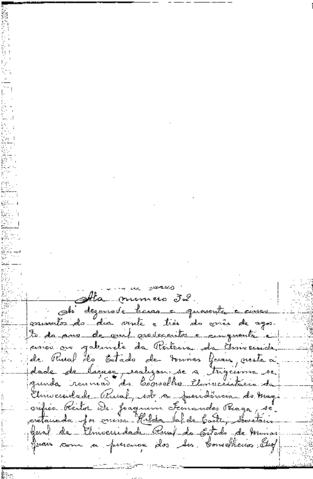 Ata numero 32
Às dezenove horas e quarenta e cinco
minutos do dia vinte e três do mês de agos-
to do ano de mil novecentos e cinquenta e
cinco no gabinete da Reitoria da Universida-
de Rural do Estado de Minas Gerais, nesta ci-
dade de realizou-se a trigésima se-
gunda reunião do Conselho Universitário da
Universidade Rural, sob a presidência do Mag-
nífico Reitor Dr. Joaquim Fernandes Braga, se-
cretariada por mim, de Castro, Secretári
Geral da Universidade Rural do Estado de Minas
Gerais com a presença dos Conselheiros